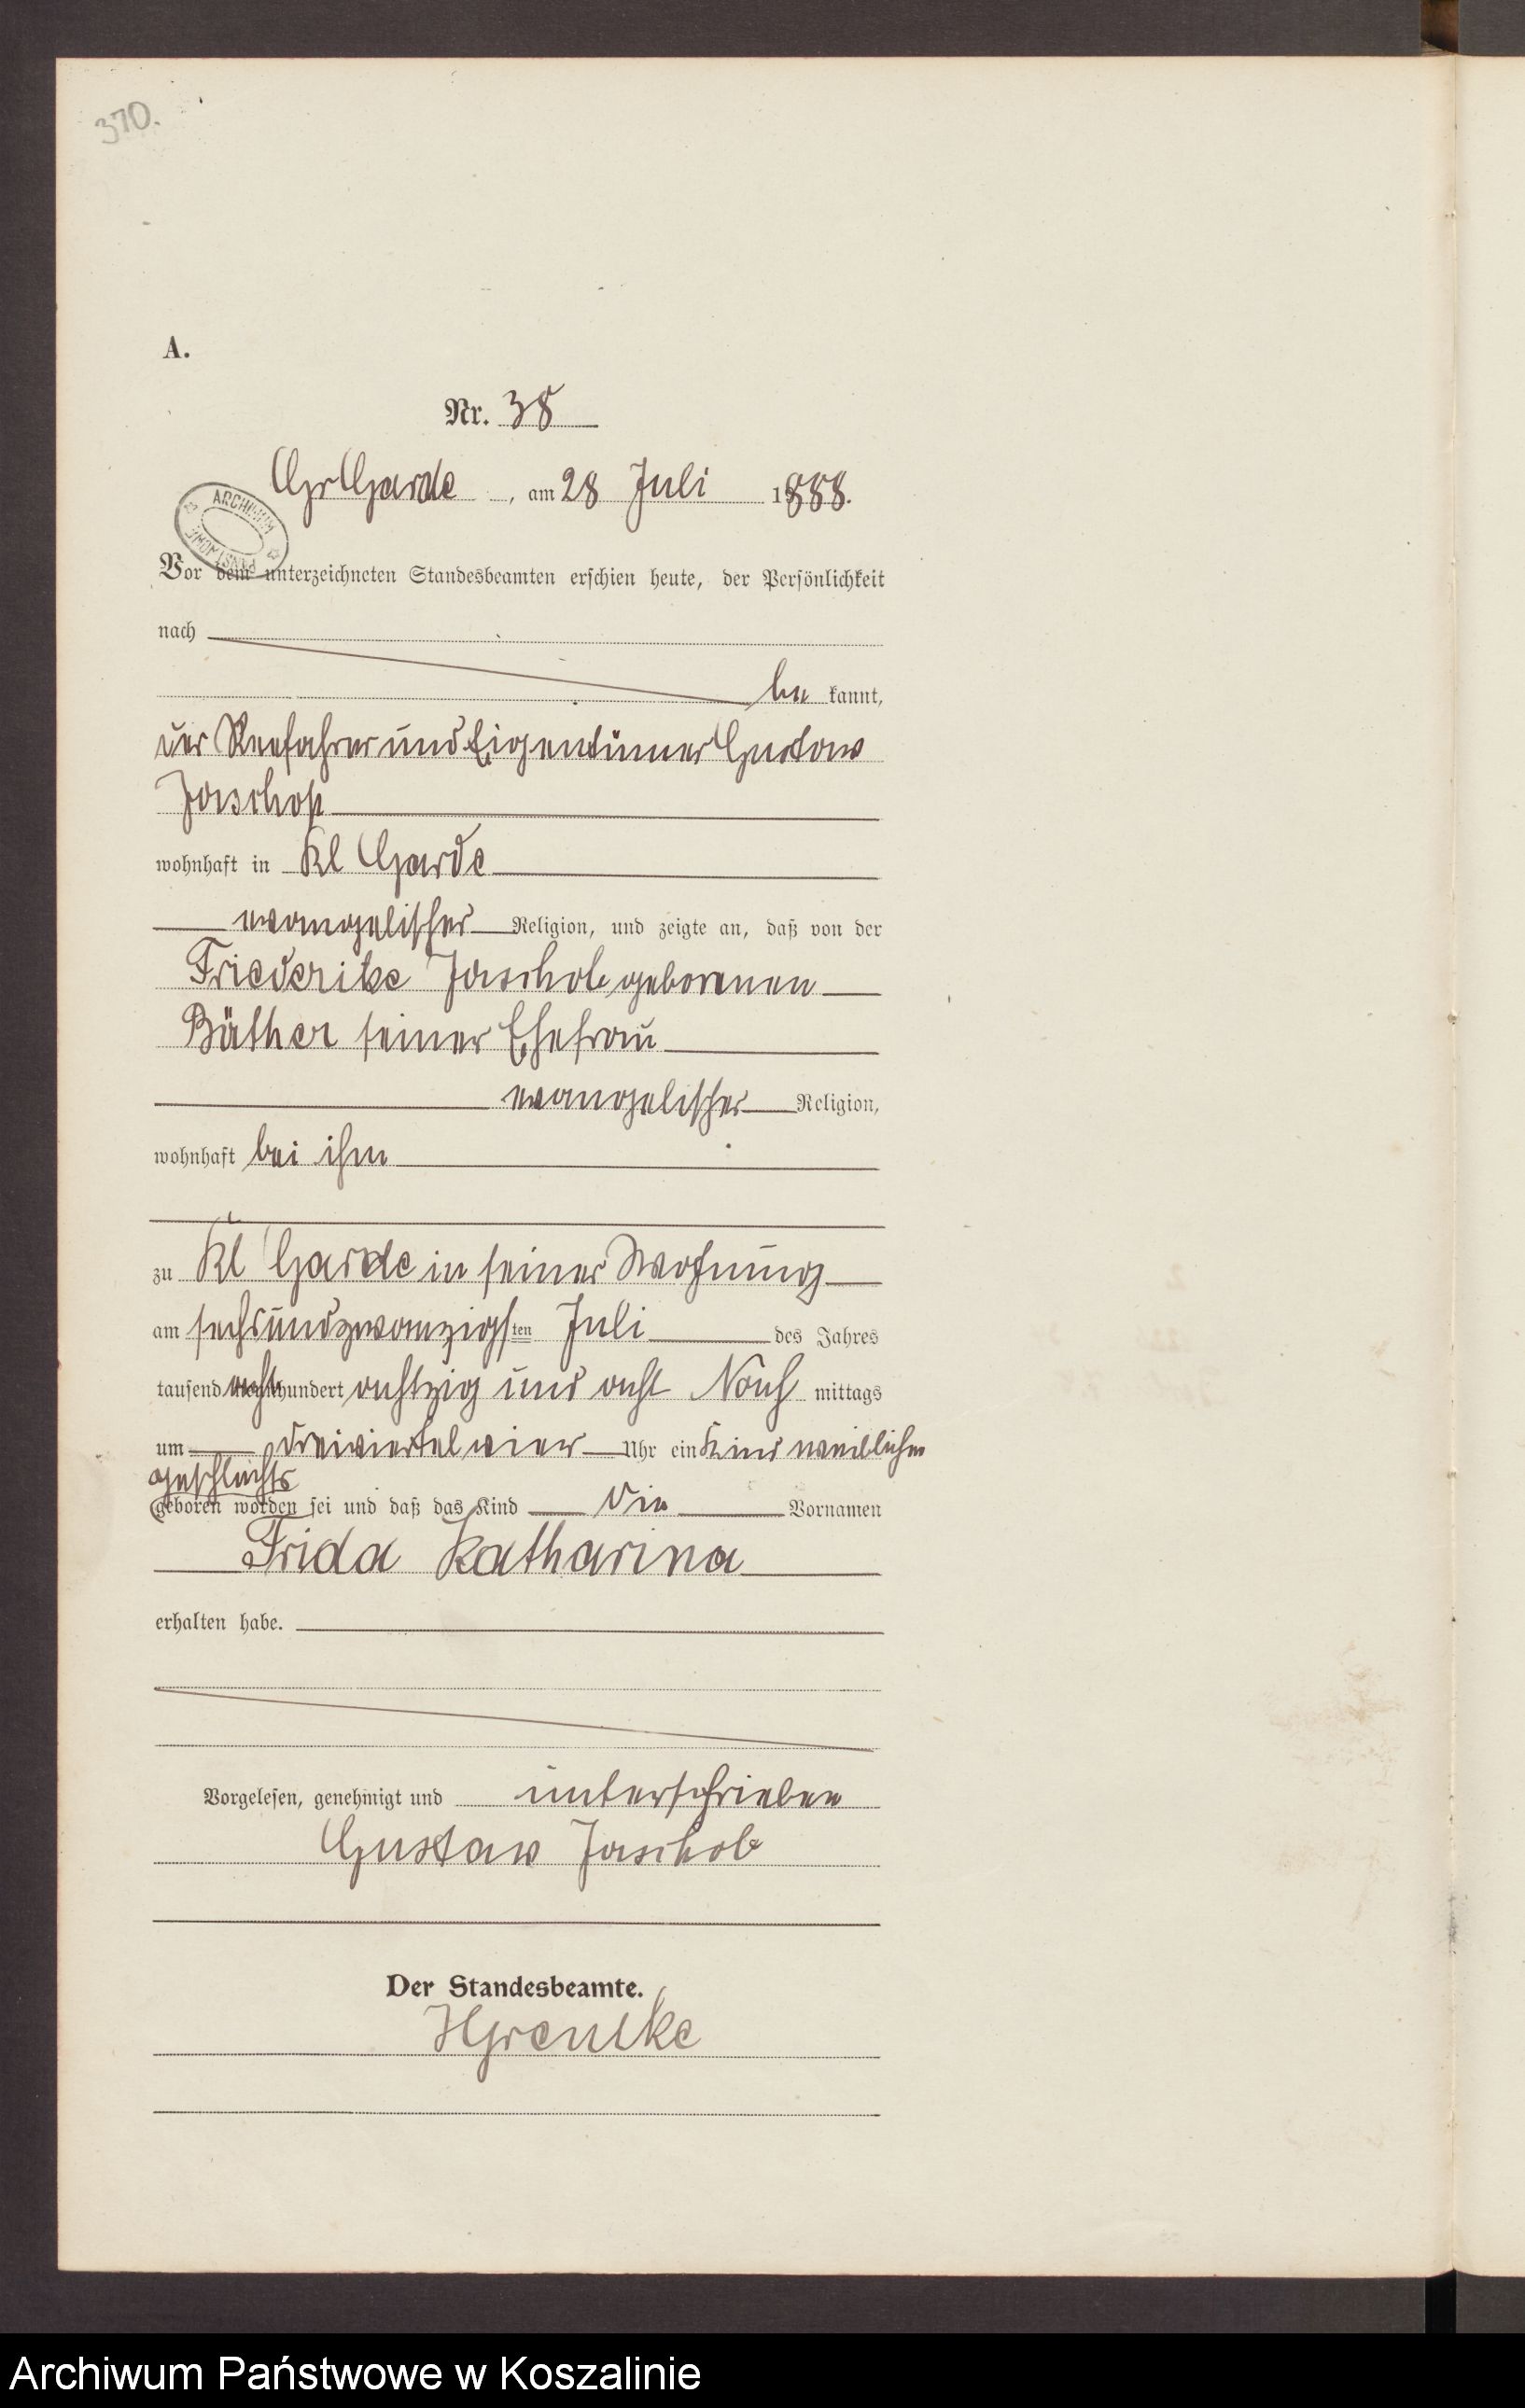 370.
A.
Nr. 38
Gr Garde, am 28 Juli 1888.
ARCHIWUM PAŃSTWOWE
Vor dem unterzeichneten Standesbeamten erschien heute, der Persönlichkeit
nach
be kannt,
der Seefahrer und Eigentümer Gustaw
Jaschop
wohnhaft in Kl Garde
evangelischer Religion, und zeigte an, daß von der
Friederike Jaschob geborenen
Büther seiner Ehefrau
evangelischer Religion,
wohnhaft bei ihm
zu Kl Garde in seiner Wohnung
am sechsundzwanzigsten Juli des Jahres
tausend acht hundert achtzig und acht Nach mittags
um dreiviertel vier Uhr ein Kind weiblichen
Geschlechts
geboren worden sei und daß das Kind die Vornamen
Frida Katharina
erhalten habe.
Vorgelesen, genehmigt und unterschrieben
Gustaw Jaschob
Der Standesbeamte.
Archiwum Państwowe w Koszalinie